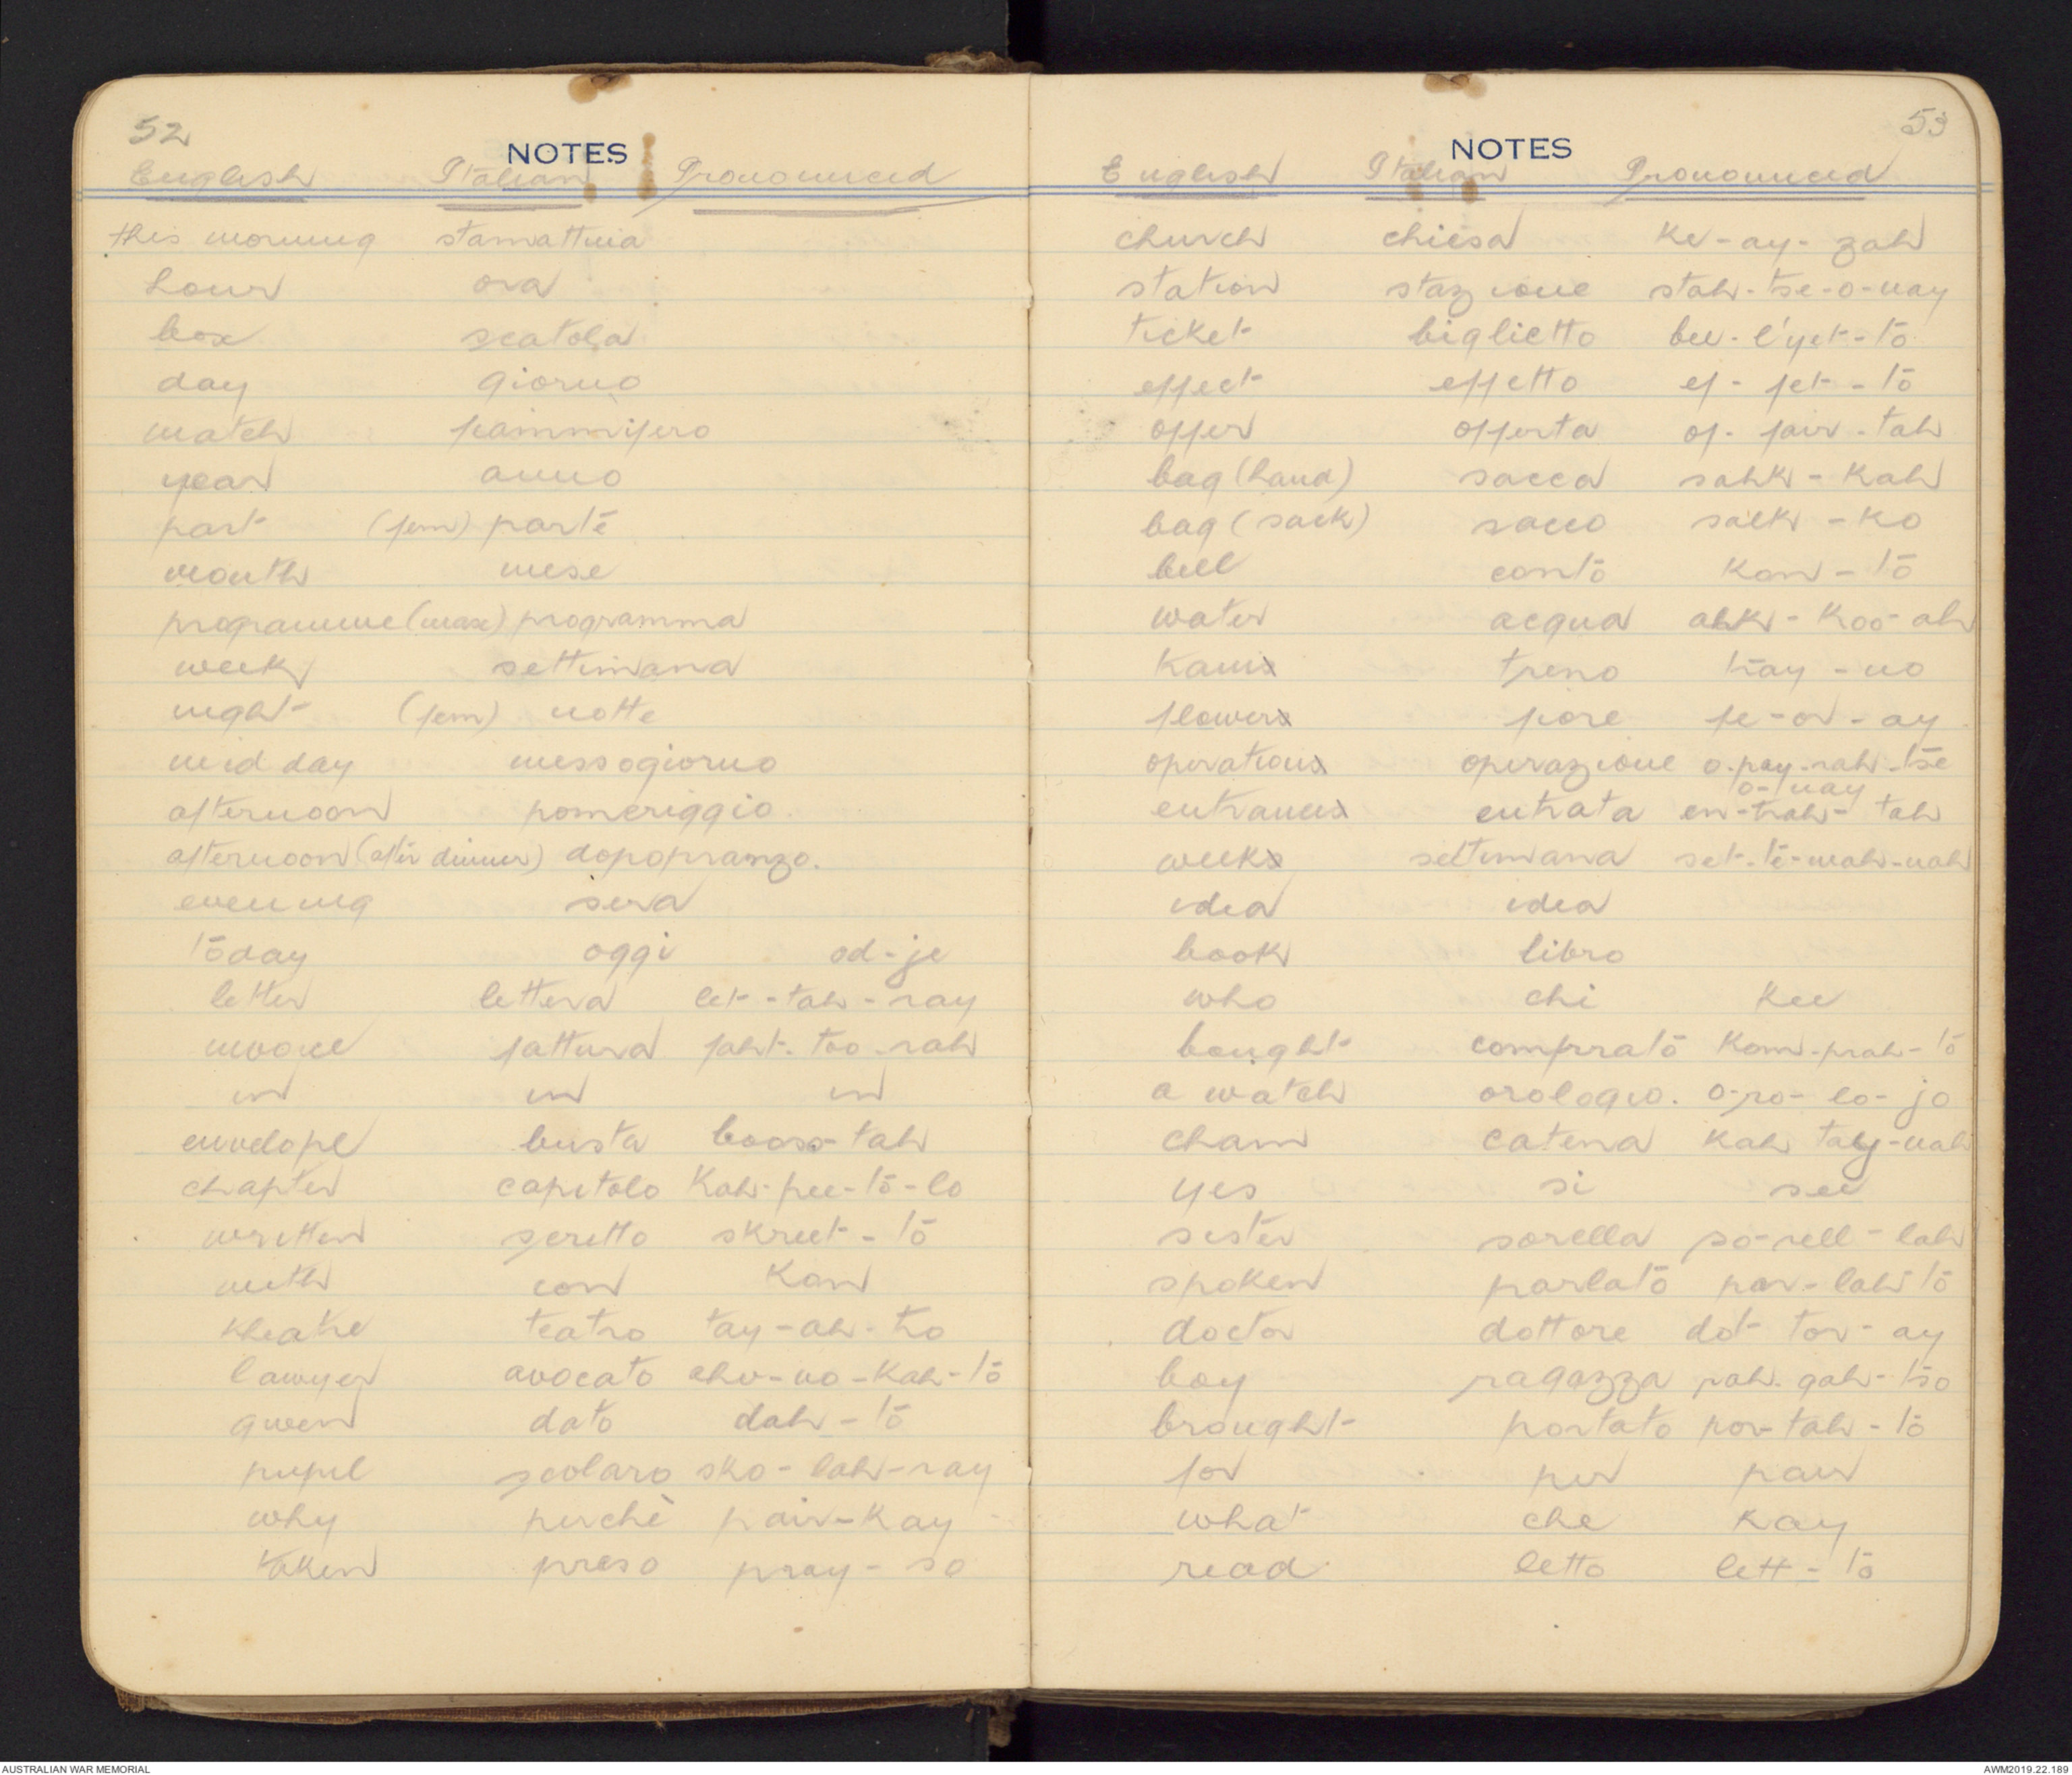 52
NOTES
English Italian Pronounced
this morning stamattina
hour ora
box scatola
day giorno
match fiammifero
year anno
part (fem) parte
month mese
programme (masc) programma
week settimana
night (fem) notte
mid day messogiorno
afternoon pomeriggio
afternoon (after dinner) dopopranzo.
evening sera
today oggi od-je
letter lettera let-tah-ray
invoice fattura faht-too-rah
in in in
envelope busta boos-tah
chapter capitolo Kah-pee-to-lo
written scritto skreet-to
with con Kon
theatre teatro tay-ah-tro
lawyer avocato ahv-vo-Kah-to
given dato dah-to
pupil scolaro sko-lah-ray
why perchè pair-Kay
taken preso pray-so
53
NOTES
English Italian Pronounced
church chiesa Ke-ay-zah
station stazione stah-tse-o-nay
ticket biglietto bee-l'yet-to
effect effetto ef-fet-to
offer offerta of-fair-tah
bag (hand) sacca sahk-Kah
bag (sack) sacco sack-Ko
bill conto Kon-to
water acqua ahk-Koo-ah
treno tray-no
flowers fiore fe-or-ay
operations operazione o-pay-rah-tse
o-nay
entrances entrata en-trah-tah
weeks settimana set-te-mah-nah
idea idea
book libro
who chi Kee
bought comprato Kom-prah-to
a watch orologio. o-ro-lo-jo
chain catena Kah tay-nah
yes si see
sister sorella so-rell-lah
spoken parlato par-lah to
doctor dottore dot-tor-ay
boy ragazza rah-gah-tso
brought portato por-tah-to
for per pair
what che Kay
read letto lett-to
AUSTRALIAN WAR MEMORIAL
AWM2019.22.189